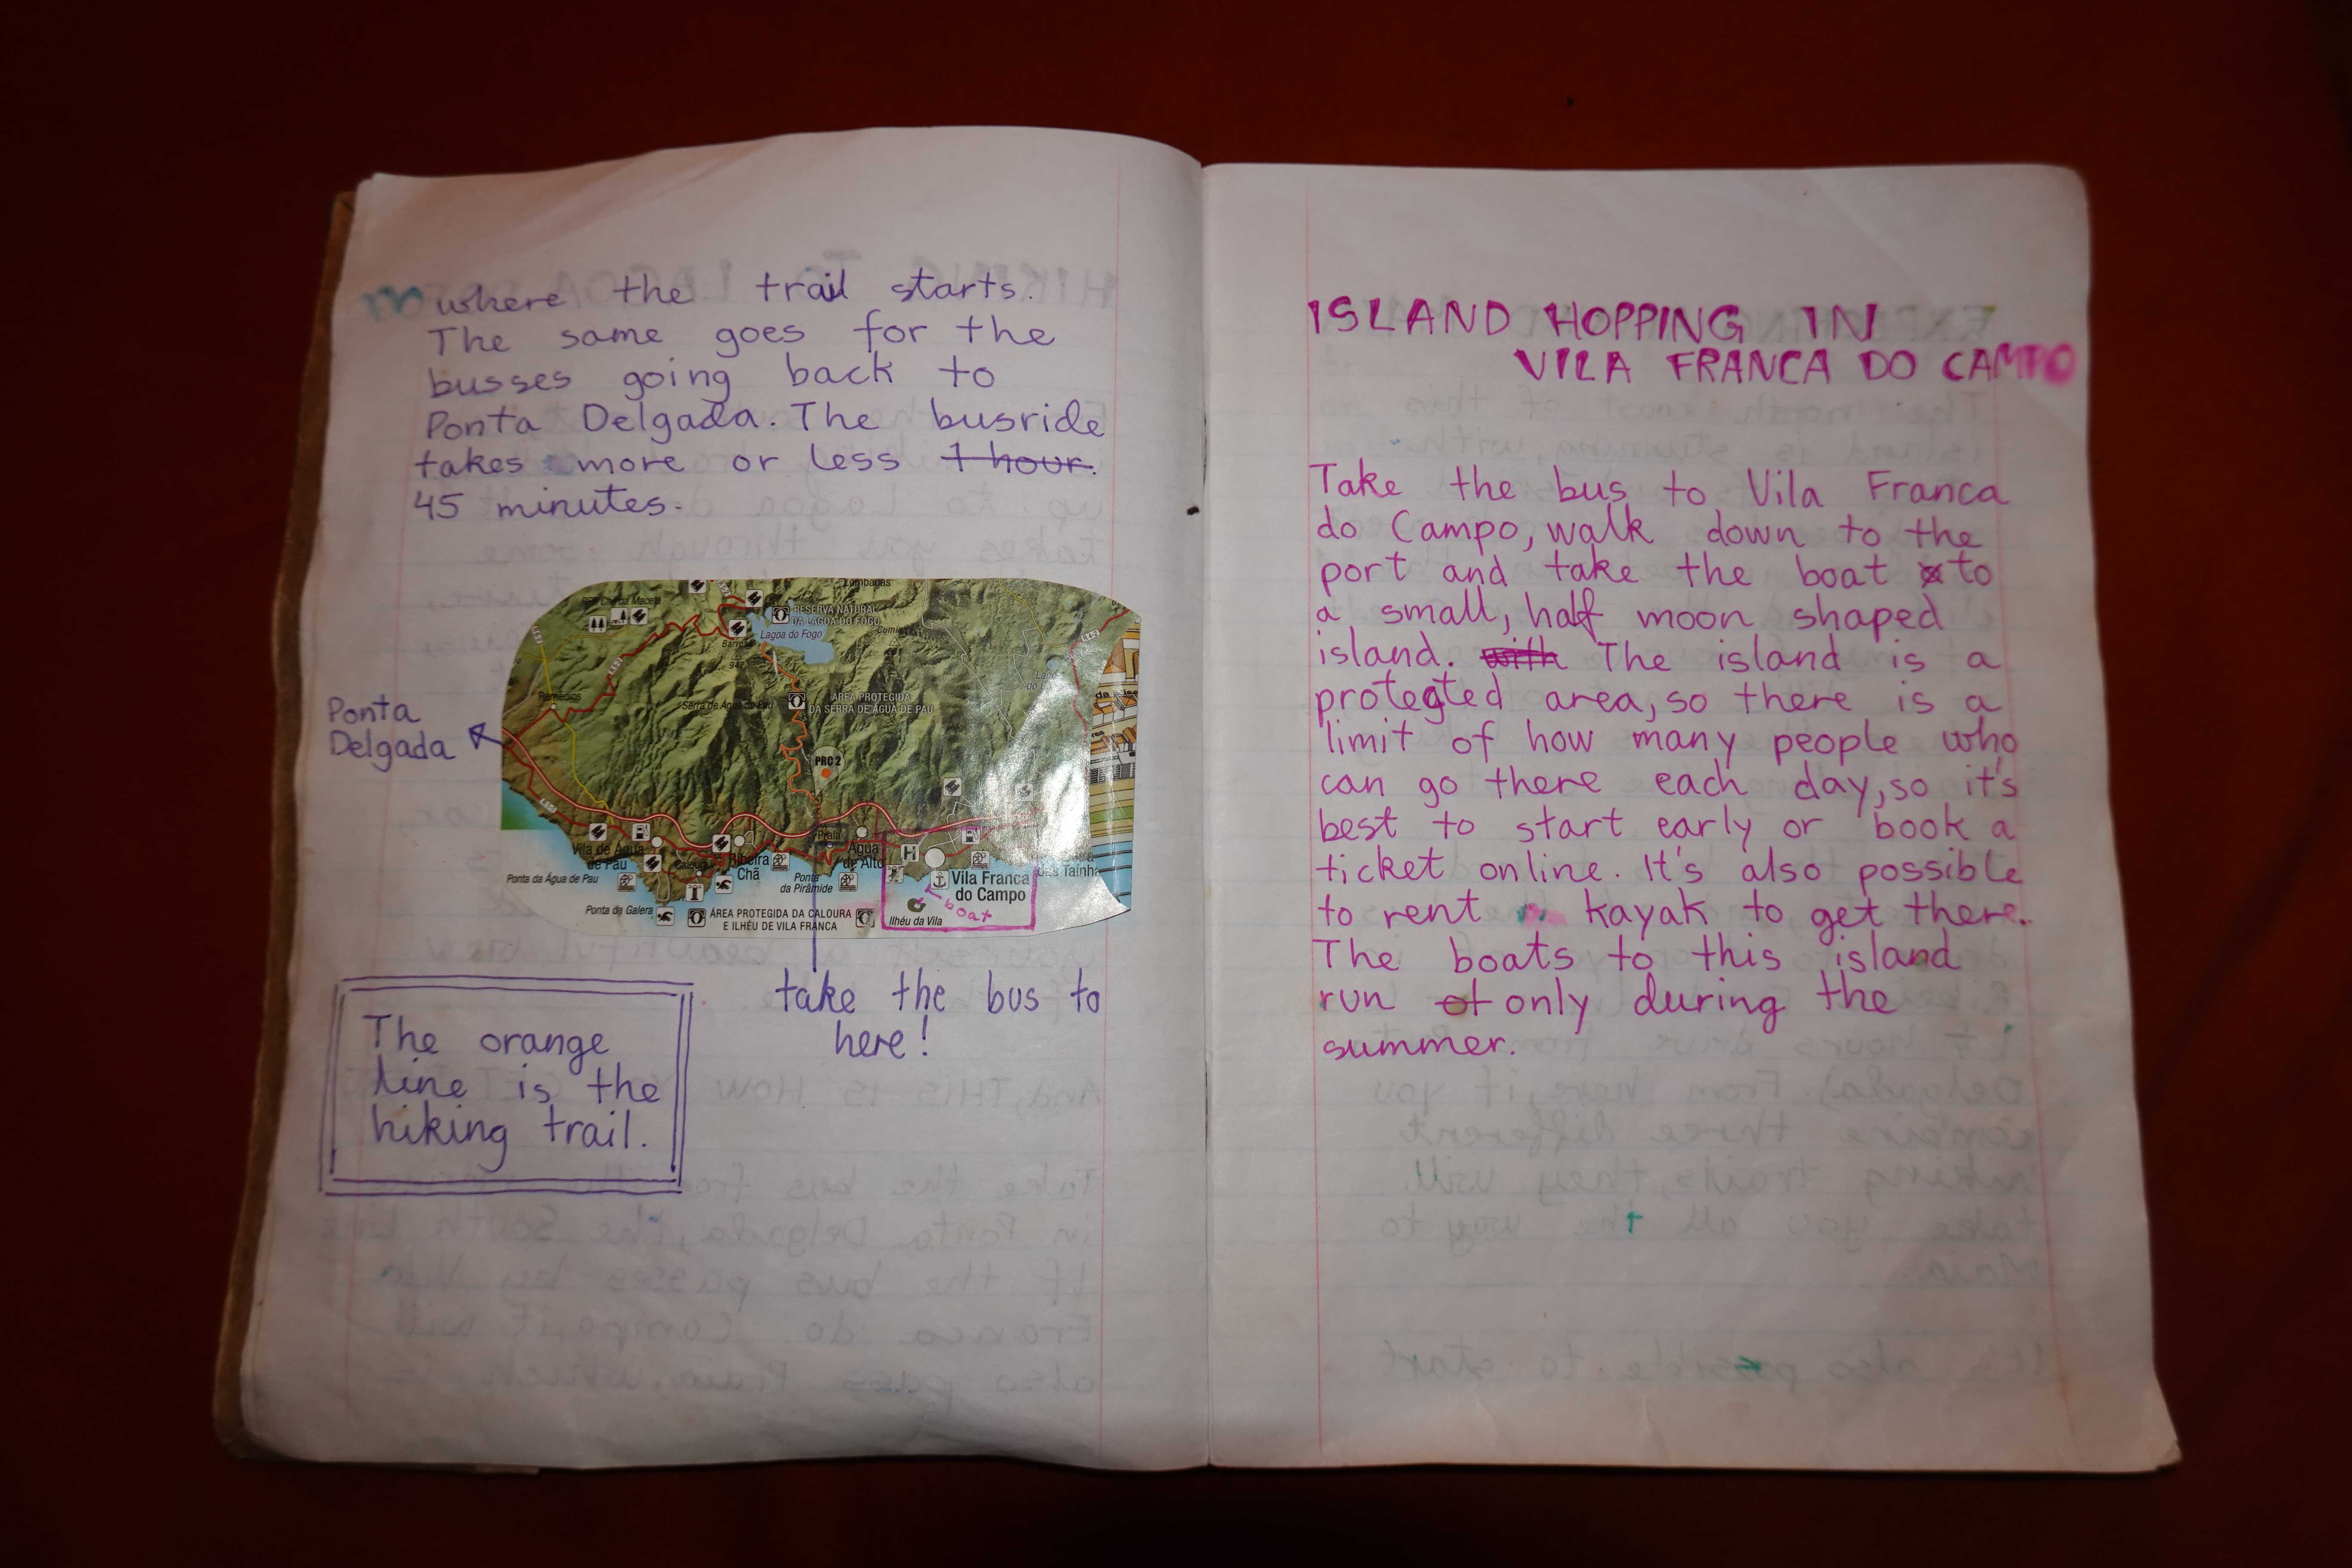 where the trail starts.
The same goes for the
busses going back to
Ponta Delgada. The busride
takes more or less 1 hour.
45 minutes.
Lombadas
RESERVA NATURAL
DA LAGOA DO FOGO
Lagoa do Fogo
ÁREA PROTEGIDA
DA SERRA DE ÁGUA DE PAU
Serra de Água de Pau
Remédios
Ponta
Delgada
PRC 2
Praia
Vila de Água
de Pau
Ribeira
Chã
Água
de Alto
Ponta da Água de Pau
Caloura
Ponta
da Pirâmide
Vila Franca
do Campo
Ponta da Galera
ÁREA PROTEGIDA DA CALOURA
E ILHÉU DE VILA FRANCA
Ilhéu da Vila
boat
take the bus to
here!
The orange
line is the
hiking trail.
ISLAND HOPPING IN
VILA FRANCA DO CAMPO
Take the bus to Vila Franca
do Campo, walk down to the
port and take the boat to
a small, half moon shaped
island. with The island is a
protected area, so there is a
limit of how many people who
can go there each day, so it's
best to start early or book a
ticket online. It's also possible
to rent kayak to get there.
The boats to this island
run of only during the
summer.